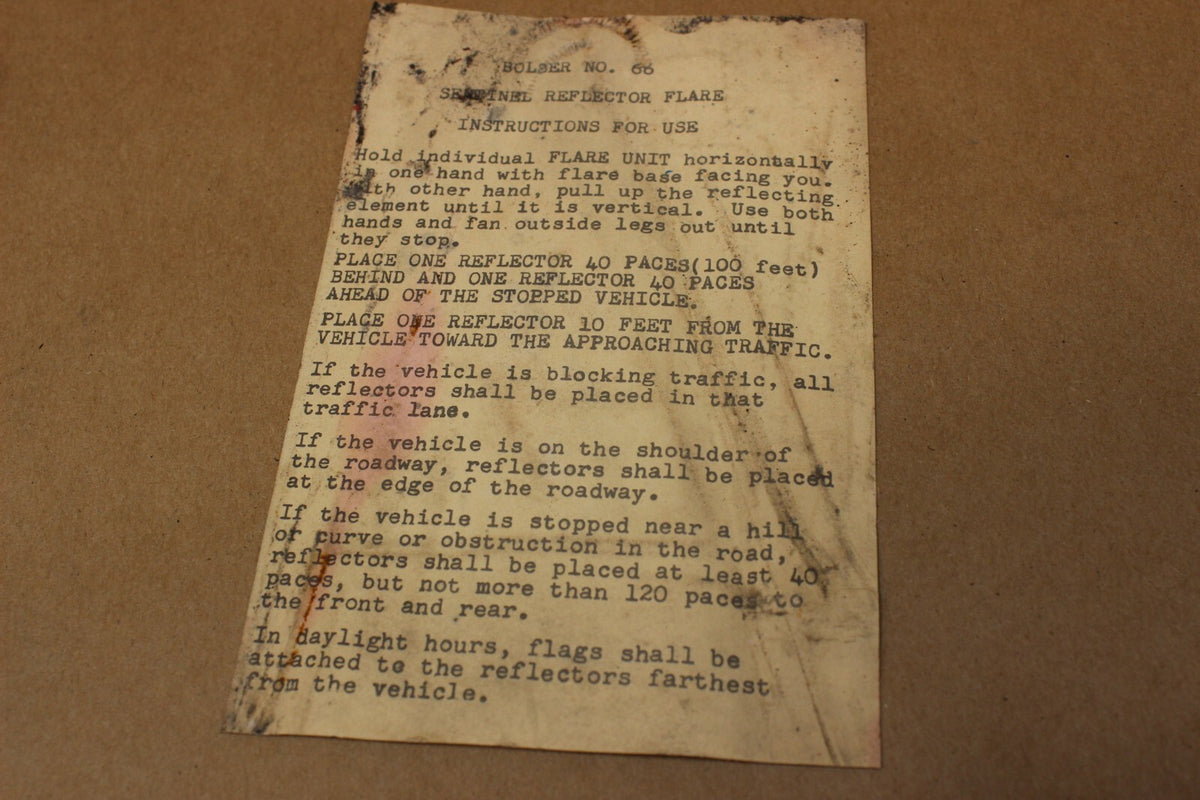 BOLSER NO. 66
SENTINEL REFLECTOR FLARE
INSTRUCTIONS FOR USE
Hold individual FLARE UNIT horizontally
in one hand with flare base facing you.
With other hand, pull up the reflecting
element until it is vertical. Use both
hands and fan outside legs out until
they stop.
PLACE ONE REFLECTOR 40 PACES(100 feet)
BEHIND AND ONE REFLECTOR 40 PACES
AHEAD OF THE STOPPED VEHICLE.
PLACE ONE REFLECTOR 10 FEET FROM THE
VEHICLE TOWARD THE APPROACHING TRAFFIC.
If the vehicle is blocking traffic, all
reflectors shall be placed in that
traffic lane.
If the vehicle is on the shoulder of
the roadway, reflectors shall be placed
at the edge of the roadway.
If the vehicle is stopped near a hill
or curve or obstruction in the road,
reflectors shall be placed at least 40
paces, but not more than 120 paces to
the front and rear.
In daylight hours, flags shall be
attached to the reflectors farthest
from the vehicle.